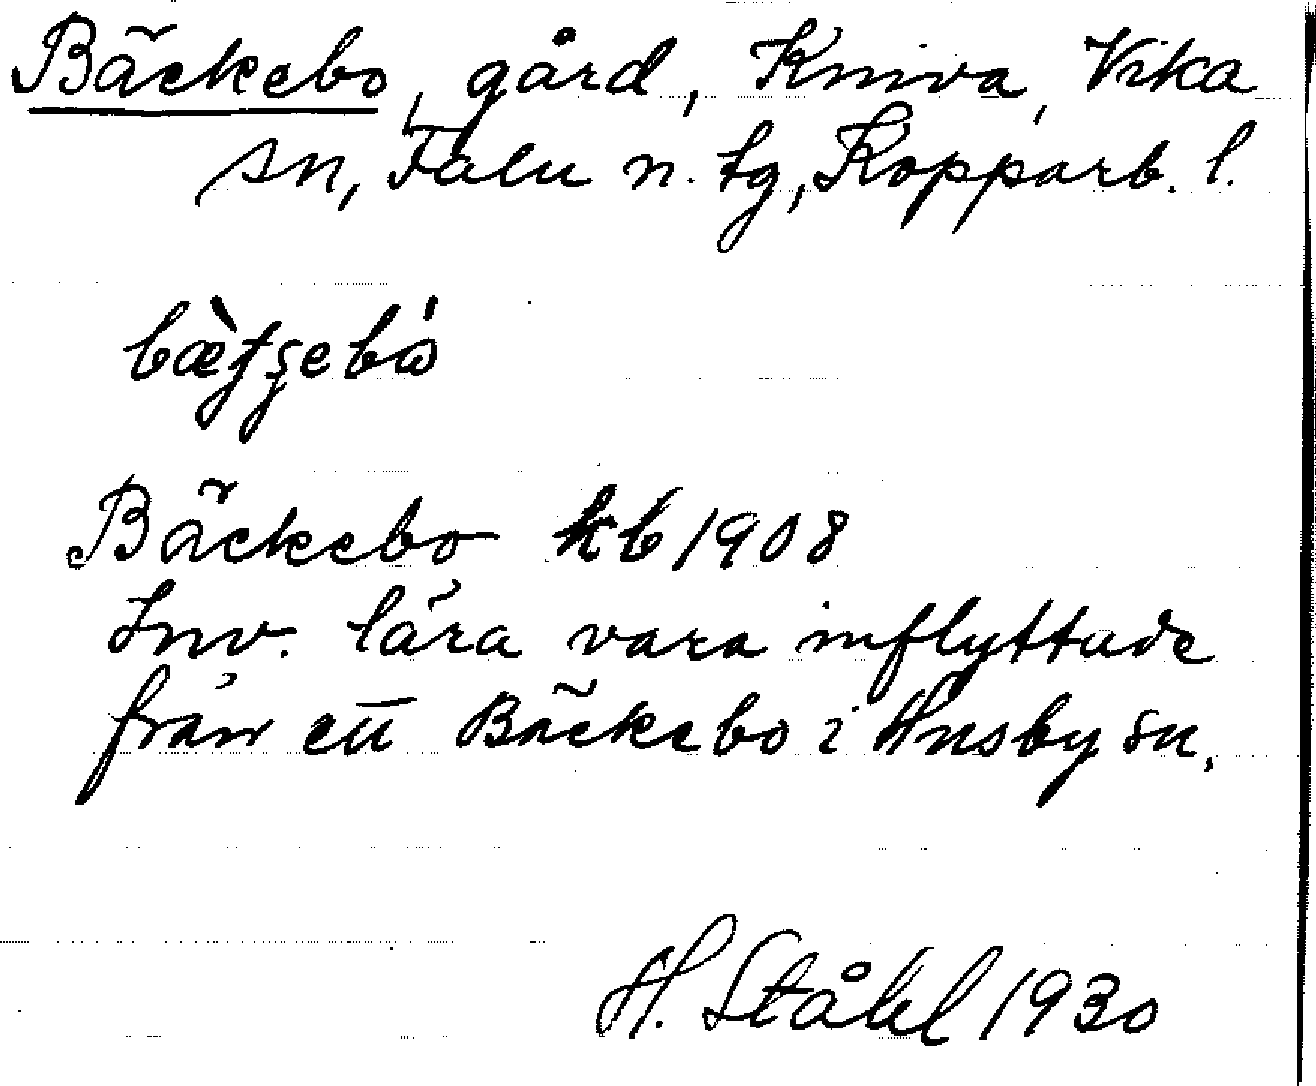 Bäckebo, gård, Kniva, Vika
sn, Falu n. tg, Kopparb. l.
Bäckebo kb 1908
Inv. lära vara inflyttade
från ett Bäckebo i Husby sn.
H. Ståhl 1930